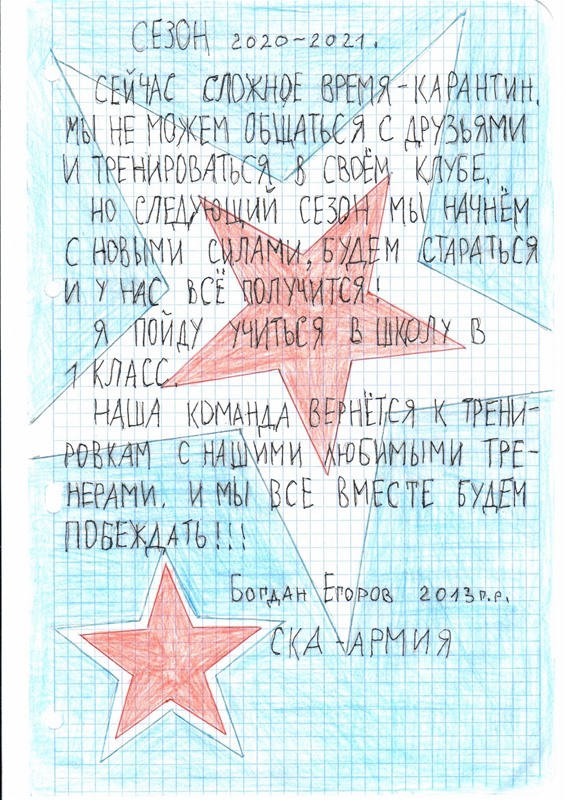 СЕЗОН 2020-2021.
СЕЙЧАС СЛОЖНОЕ ВРЕМЯ-КАРАНТИН.
МЫ НЕ МОЖЕМ ОБЩАТЬСЯ С ДРУЗЬЯМИ
И ТРЕНИРОВАТЬСЯ В СВОЁМ КЛУБЕ.
НО СЛЕДУЮЩИЙ СЕЗОН МЫ НАЧНЁМ
С НОВЫМИ СИЛАМИ, БУДЕМ СТАРАТЬСЯ
И У НАС ВСЁ ПОЛУЧИТСЯ!
Я ПОЙДУ УЧИТЬСЯ В ШКОЛУ В
1 КЛАСС.
НАША КОМАНДА ВЕРНЁТСЯ К ТРЕНИ-
РОВКАМ С НАШИМИ ЛЮБИМЫМИ ТРЕ-
НЕРАМИ. И МЫ ВСЕ ВМЕСТЕ БУДЕМ
ПОБЕЖДАТЬ!!!
БОГДАН ЕГОРОВ 2013г.р.
СКА-АРМИЯ